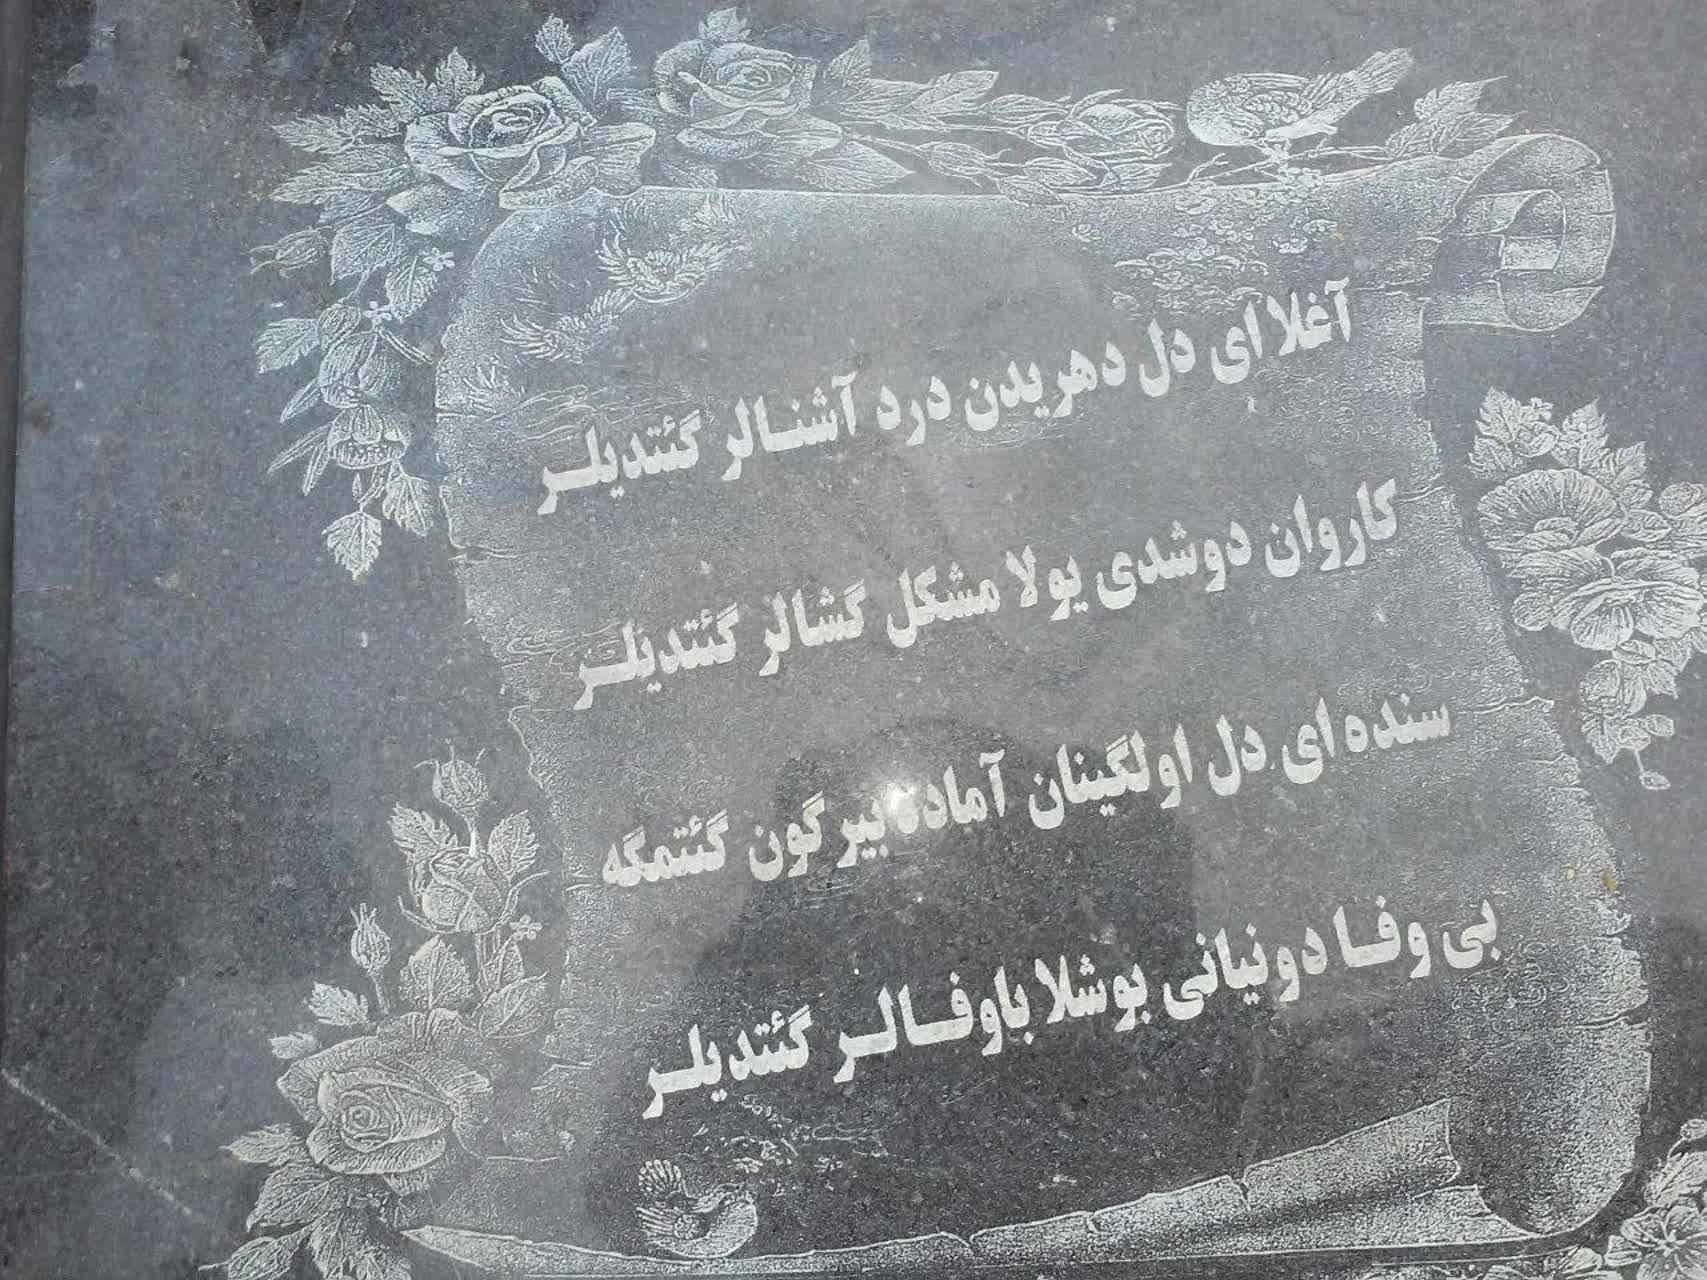 آغلا ای دل دهریدن درد آشنالر گئتدیلر
کاروان دوشدی یولا مشکل گشالر گئتدیلر
سنده ای دل اولگینان آماده بیر گون گئتمگه
بی وفا دونیانی بوشلا باوفالر گئتدیلر